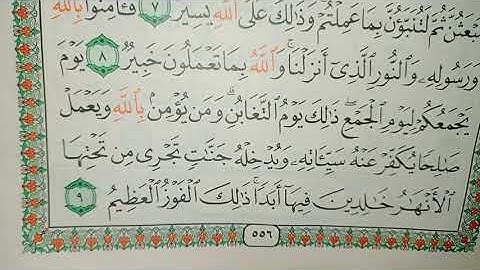 لَتُبۡعَثُنَّ ثُمَّ لَتُنَبَّؤُنَّ بِمَا عَمِلۡتُمۡ وَذَٰلِكَ عَلَى ٱللَّهِ يَسِيرٞ ٧ فَـَٔامِنُواْ بِٱللَّهِ
وَرَسُولِهِۦ وَٱلنُّورِ ٱلَّذِيٓ أَنزَلۡنَاۚ وَٱللَّهُ بِمَا تَعۡمَلُونَ خَبِيرٞ ٨ يَوۡمَ
يَجۡمَعُكُمۡ لِيَوۡمِ ٱلۡجَمۡعِۖ ذَٰلِكَ يَوۡمُ ٱلتَّغَابُنِۗ وَمَن يُؤۡمِنۢ بِٱللَّهِ وَيَعۡمَلۡ
صَٰلِحٗا يُكَفِّرۡ عَنۡهُ سَيِّـَٔاتِهِۦ وَيُدۡخِلۡهُ جَنَّٰتٖ تَجۡرِي مِن تَحۡتِهَا
ٱلۡأَنۡهَٰرُ خَٰلِدِينَ فِيهَآ أَبَدٗاۚ ذَٰلِكَ ٱلۡفَوۡزُ ٱلۡعَظِيمُ ٩
٥٥٦